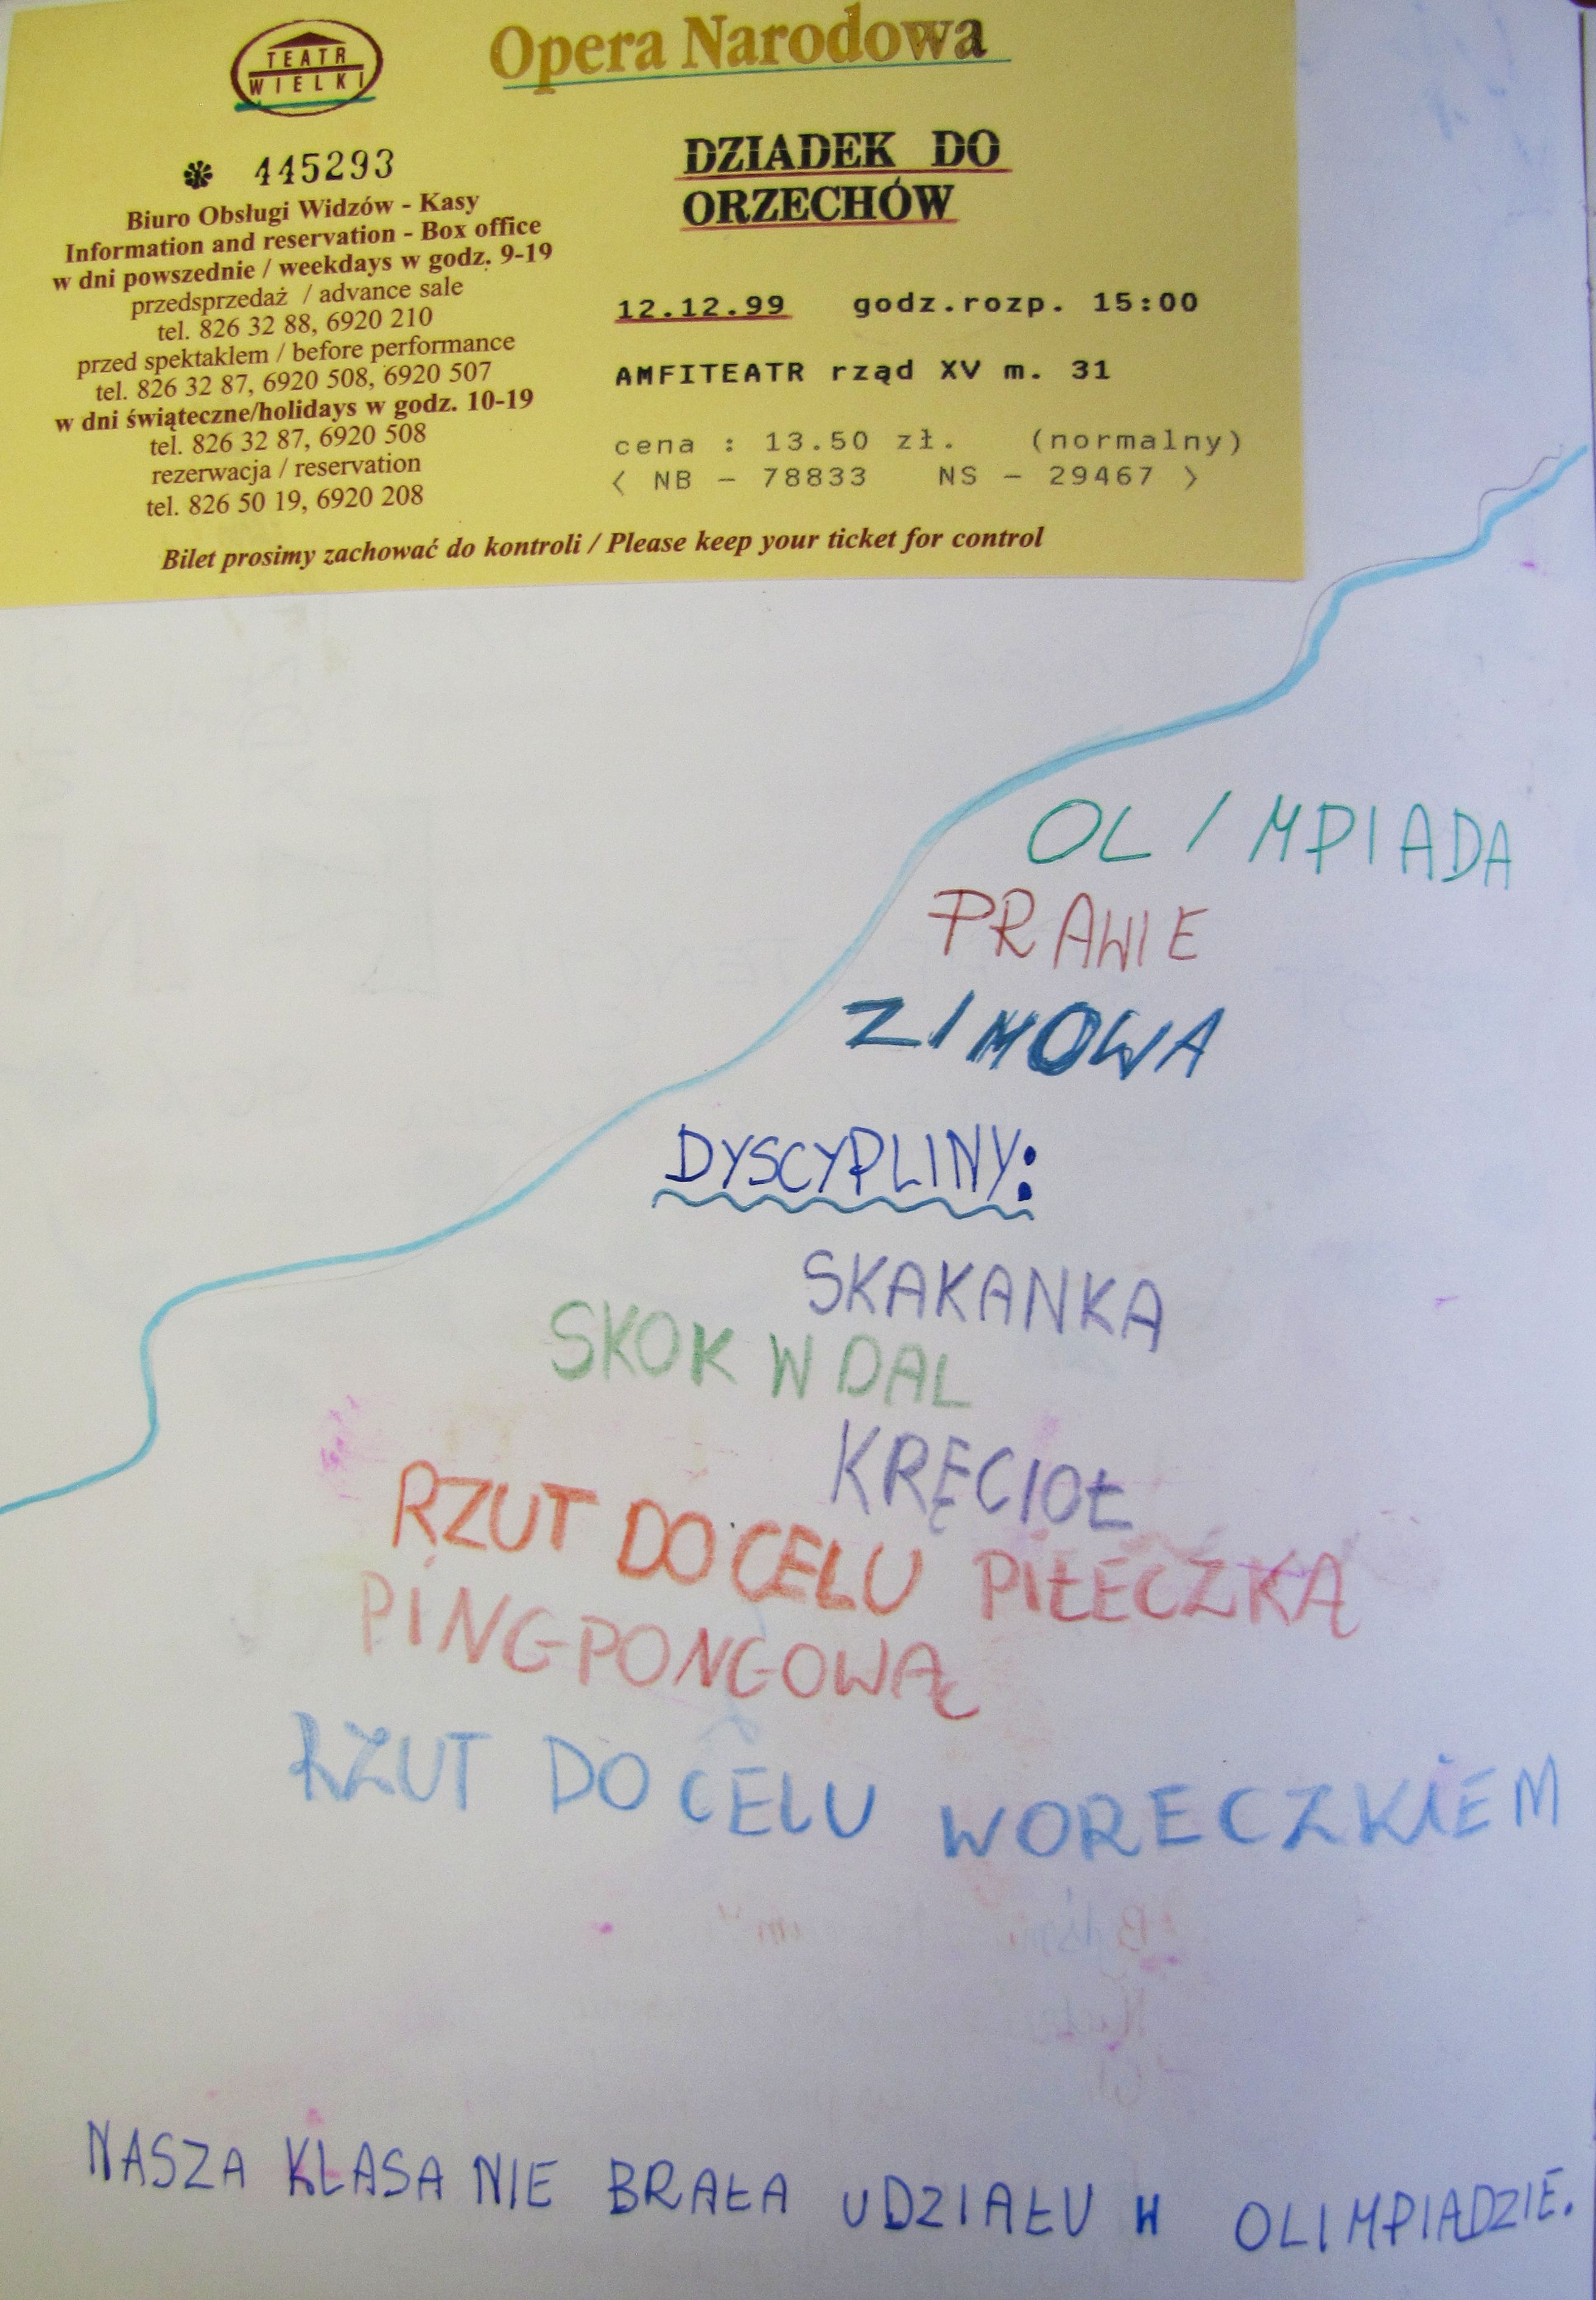 TEATR
WIELKI
Opera Narodowa
✽ 445293
Biuro Obsługi Widzów - Kasy
Information and reservation - Box office
w dni powszednie / weekdays w godz. 9-19
przedsprzedaż / advance sale
tel. 826 32 88, 6920 210
przed spektaklem / before performance
tel. 826 32 87, 6920 508, 6920 507
w dni świąteczne/holidays w godz. 10-19
tel. 826 32 87, 6920 508
rezerwacja / reservation
tel. 826 50 19, 6920 208
DZIADEK DO
ORZECHÓW
12.12.99 godz.rozp. 15:00
AMFITEATR rząd XV m. 31
cena : 13.50 zł. (normalny)
< NB - 78833 NS - 29467 >
Bilet prosimy zachować do kontroli / Please keep your ticket for control
OLIMPIADA
PRAWIE
ZIMOWA
DYSCYPLINY:
SKAKANKA
SKOK W DAL
KRĘCIOŁ
RZUT DO CELU PIŁECZKĄ
PINGPONGOWĄ
RZUT DO CELU WORECZKIEM
NASZA KLASA NIE BRAŁA UDZIAŁU W OLIMPIADZIE.